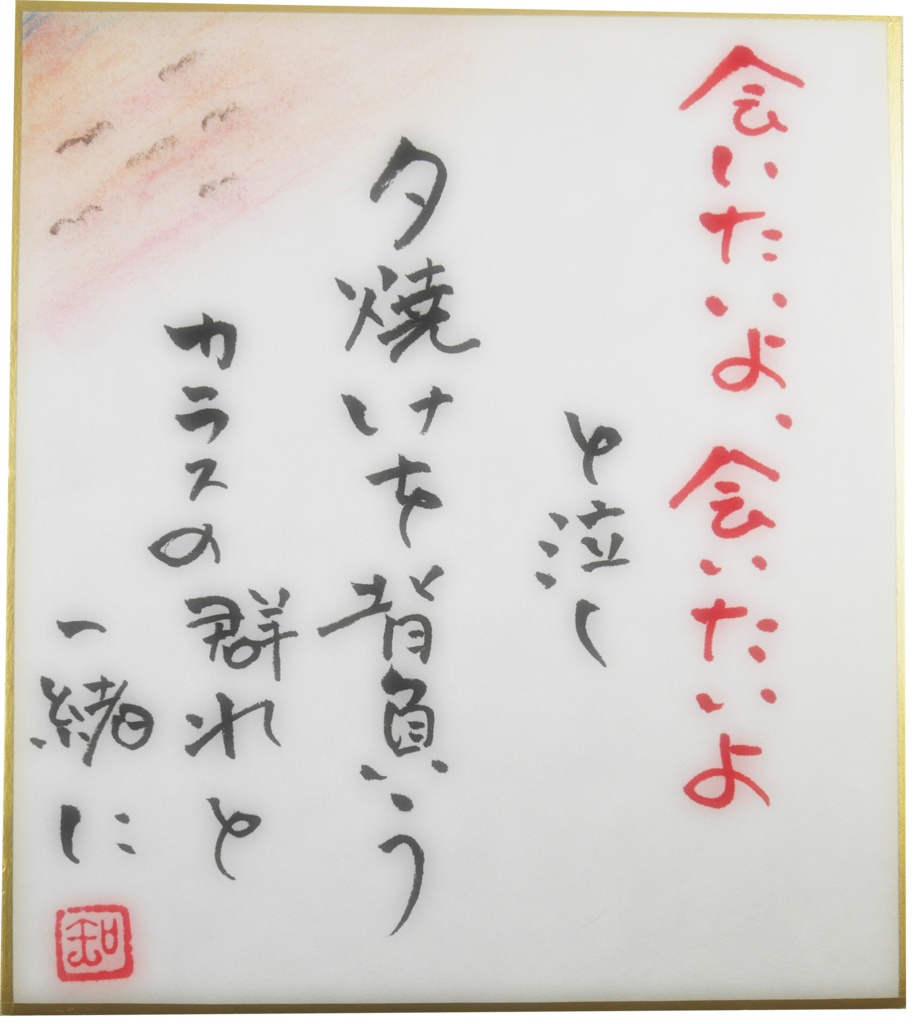 会いたいよ、会いたいよ
と泣く
夕焼けを背負う
カラスの群れと
一緒に
知